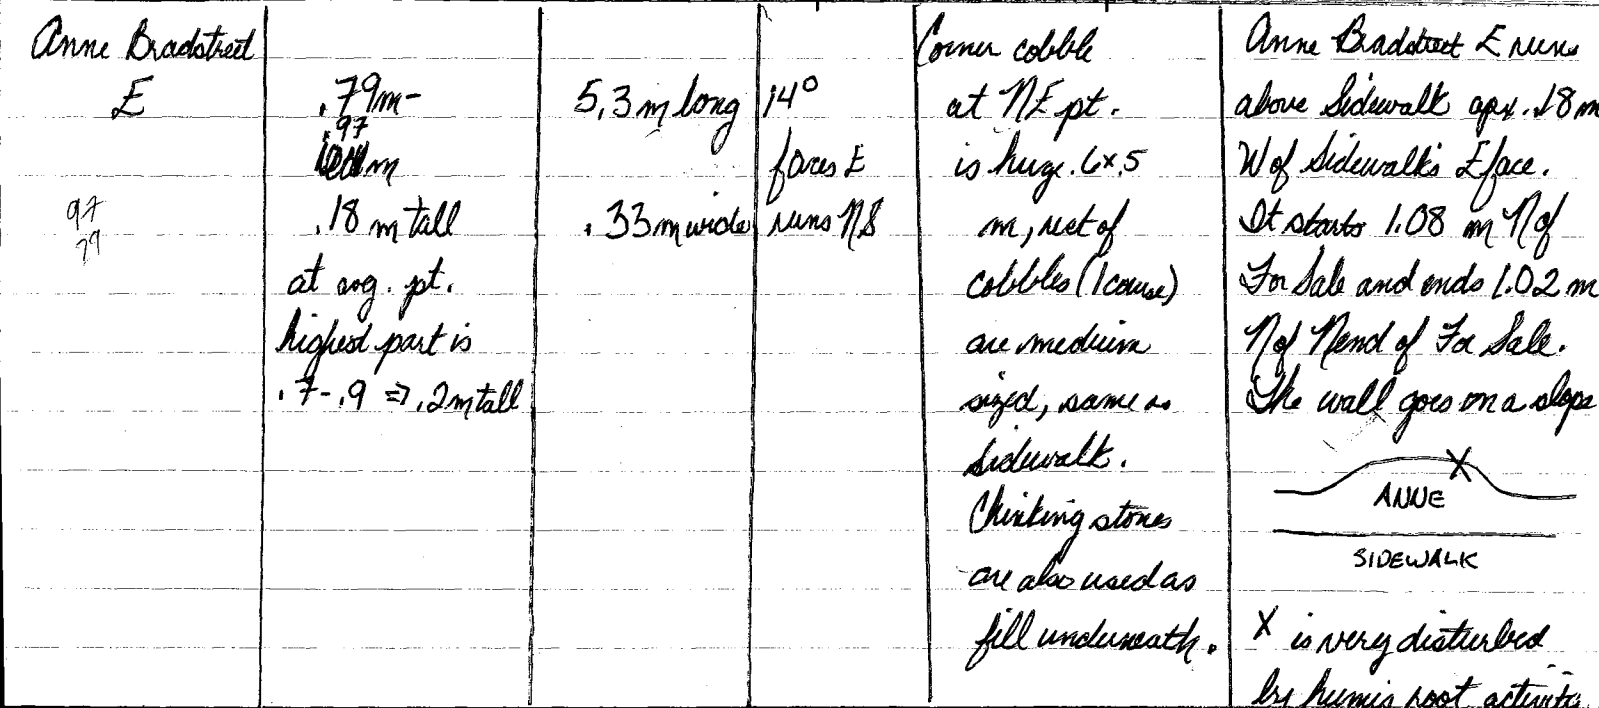 Anne Bradstreet
E
97
79
.79m-
.97
m
.18 m tall
at avg. pt.
highest part is
.7-.9 => .2m tall
5.3 m long
.33m wide
14°
faces E
runs NS
Corner cobble
at NE pt.
is huge .6x.5
m, rest of
cobbles (1 course)
are medium
sized, same as
Sidewalk.
Chinking stones
are also used as
fill underneath.
Anne Bradstreet E runs
above Sidewalk apx. .18 m
W of Sidewalk's E face.
It starts 1.08 m N of
For Sale and ends 1.02 m
N of N end of For Sale.
The wall goes on a slope
X
ANNE
SIDEWALK
X is very disturbed
by humis root activity